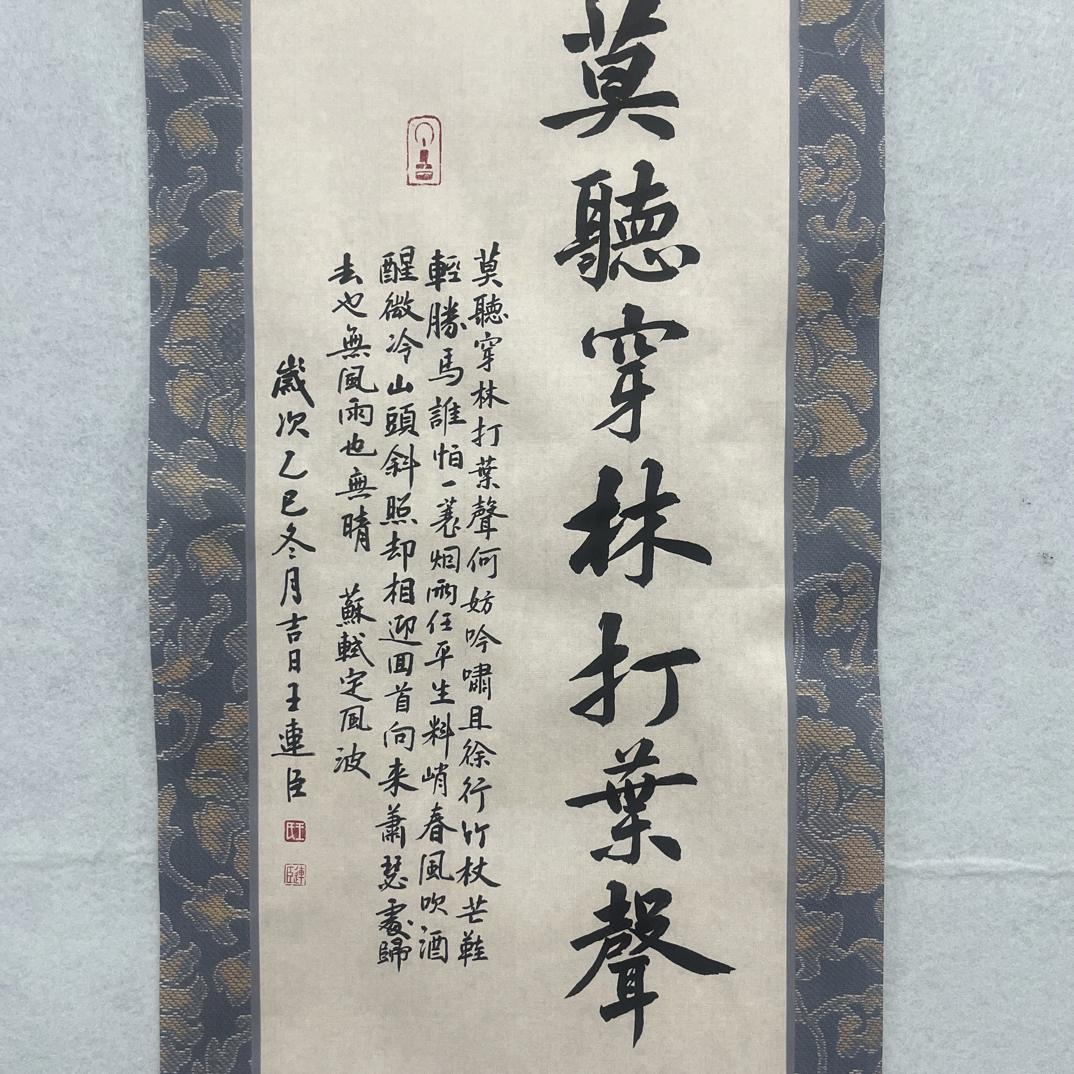 莫聽穿林打葉聲
莫聽穿林打葉聲何妨吟嘯且徐行竹杖芒鞋
輕勝馬誰怕一蓑烟雨任平生料峭春風吹酒
醒微冷山頭斜照却相迎回首向来蕭瑟處歸
去也無風雨也無晴 蘇軾定風波
歲次乙巳冬月吉日王連臣
王氏
連臣